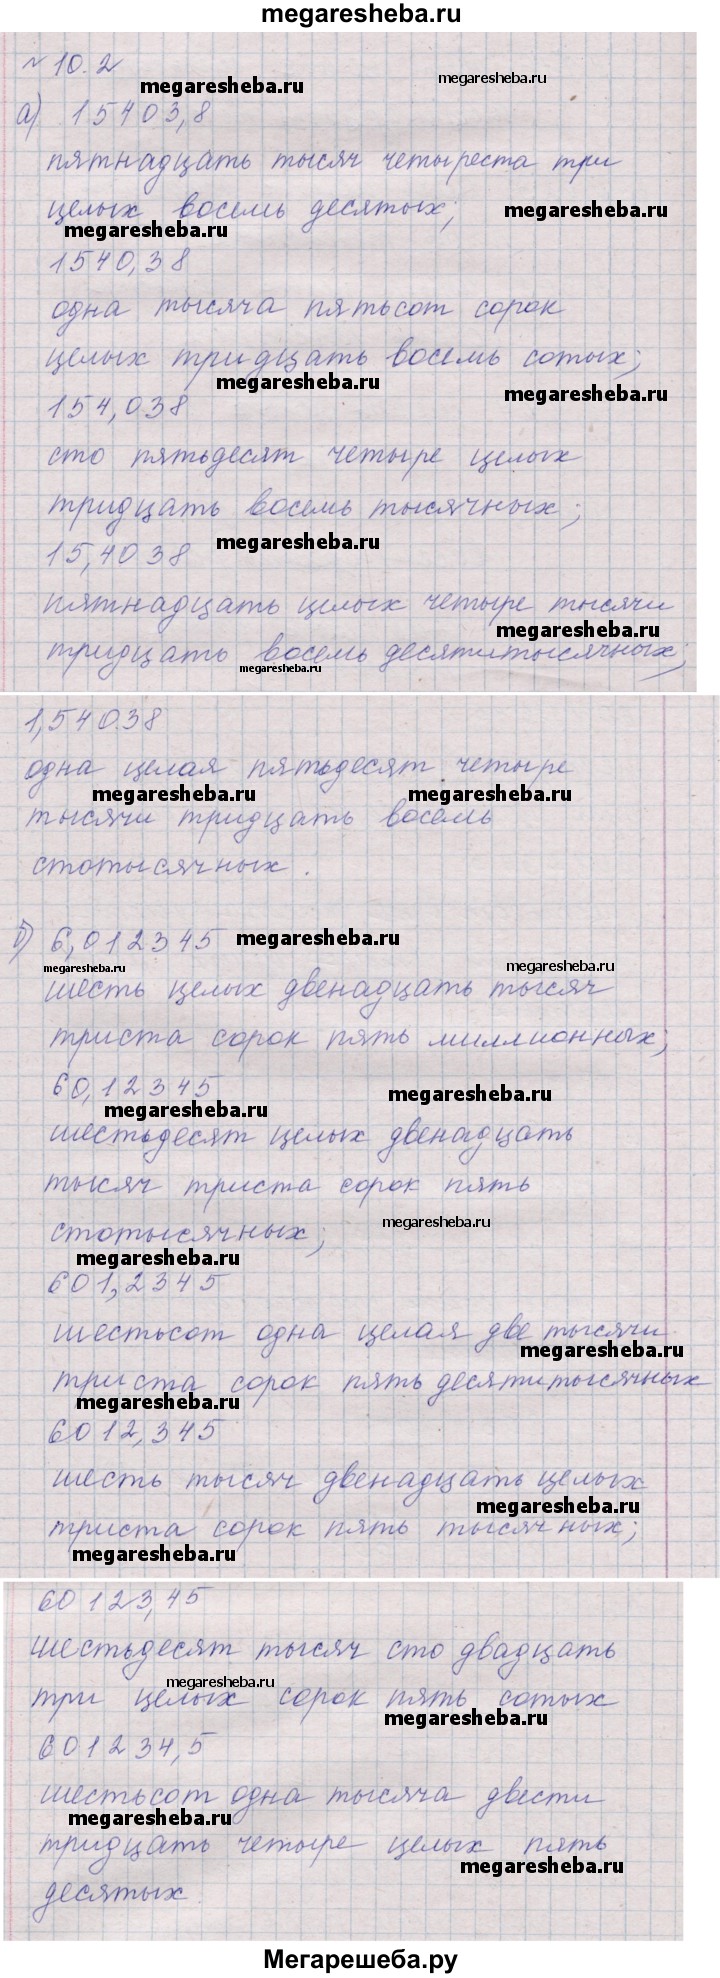 megaresheba.ru
№ 10.2
megaresheba.ru megaresheba.ru
а) 15403,8
пятнадцать тысяч четыреста три
целых восемь десятых;
megaresheba.ru megaresheba.ru
1540,38
одна тысяча пятьсот сорок
целых тридцать восемь сотых;
megaresheba.ru megaresheba.ru
154,038
сто пятьдесят четыре целых
тридцать восемь тысячных;
megaresheba.ru
15,4038
пятнадцать целых четыре тысячи
megaresheba.ru
тридцать восемь десятитысячных;
megaresheba.ru
1,54038
одна целая пятьдесят четыре
megaresheba.ru megaresheba.ru
тысячи тридцать восемь
стотысячных.
б) 6,012345 megaresheba.ru
megaresheba.ru megaresheba.ru
шесть целых двенадцать тысяч
триста сорок пять миллионных;
60,12345 megaresheba.ru
megaresheba.ru
шестьдесят целых двенадцать
тысяч триста сорок пять
стотысячных; megaresheba.ru
megaresheba.ru
601,2345
шестьсот одна целая две тысячи
megaresheba.ru
триста сорок пять десятитысячных
megaresheba.ru
6012,345
шесть тысяч двенадцать целых
megaresheba.ru
триста сорок пять тысячных;
megaresheba.ru
60123,45
шестьдесят тысяч сто двадцать
megaresheba.ru
три целых сорок пять сотых
megaresheba.ru
601234,5
шестьсот одна тысяча двести
megaresheba.ru
тридцать четыре целых пять
megaresheba.ru
десятых
Мегарешеба.ру